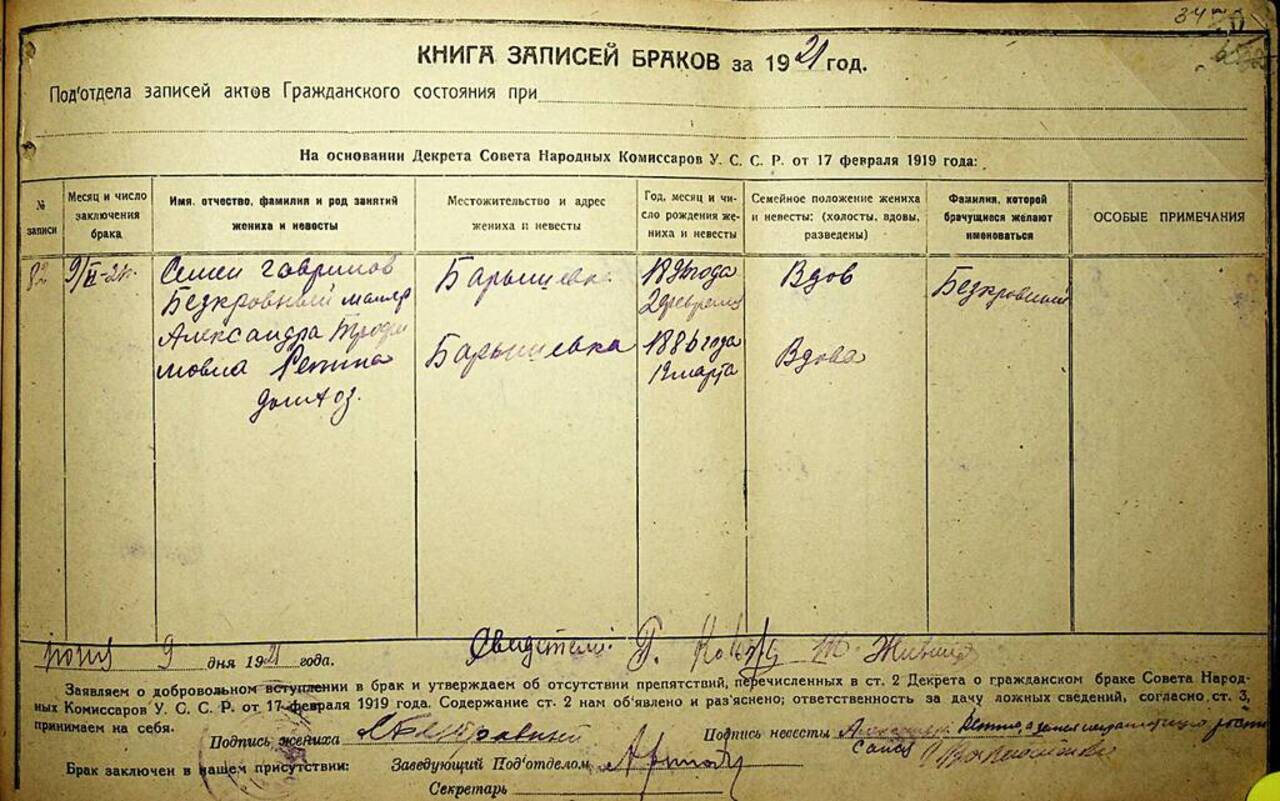 КНИГА ЗАПИСЕЙ БРАКОВ за 1921 год.
Под'отдела записей актов Гражданского состояния при
На основании Декрета Совета Народных Комиссаров У. С. С. Р. от 17 февраля 1919 года:
№ записи
Месяц и число заключения брака.
Имя, отчество, фамилия и род занятий жениха и невесты
Местожительство и адрес жениха и невесты
Год, месяц и число рождения жениха и невесты
Семейное положение жениха и невесты: (холосты, вдовы, разведены)
Фамилия, которой брачущиеся желают именоваться
ОСОБЫЕ ПРИМЕЧАНИЯ
82
Семен Гаврилов
Безкровный маляр
Барышевка
2 февраля
Вдов
Безкровный
Александра Трофи
мовна Репина
Барышевка
1886 года
19 марта
Вдова
домхоз.
июня 9 дня 1921 года.
Свидетели: Г.
Заявляем о добровольном вступлении в брак и утверждаем об отсутствии препятствий, перечисленных в ст. 2 Декрета о гражданском браке Совета Народ-
ных Комиссаров У. С. С. Р. от 17 февраля 1919 года. Содержание ст. 2 нам об'явлено и раз'яснено; ответственность за дачу ложных сведений, согласно ст. 3,
принимаем на себя.
Подпись жениха
Подпись невесты Александра Репина, а за
Брак заключен в нашем присутствии:
Заведующий Под'отделом
Секретарь